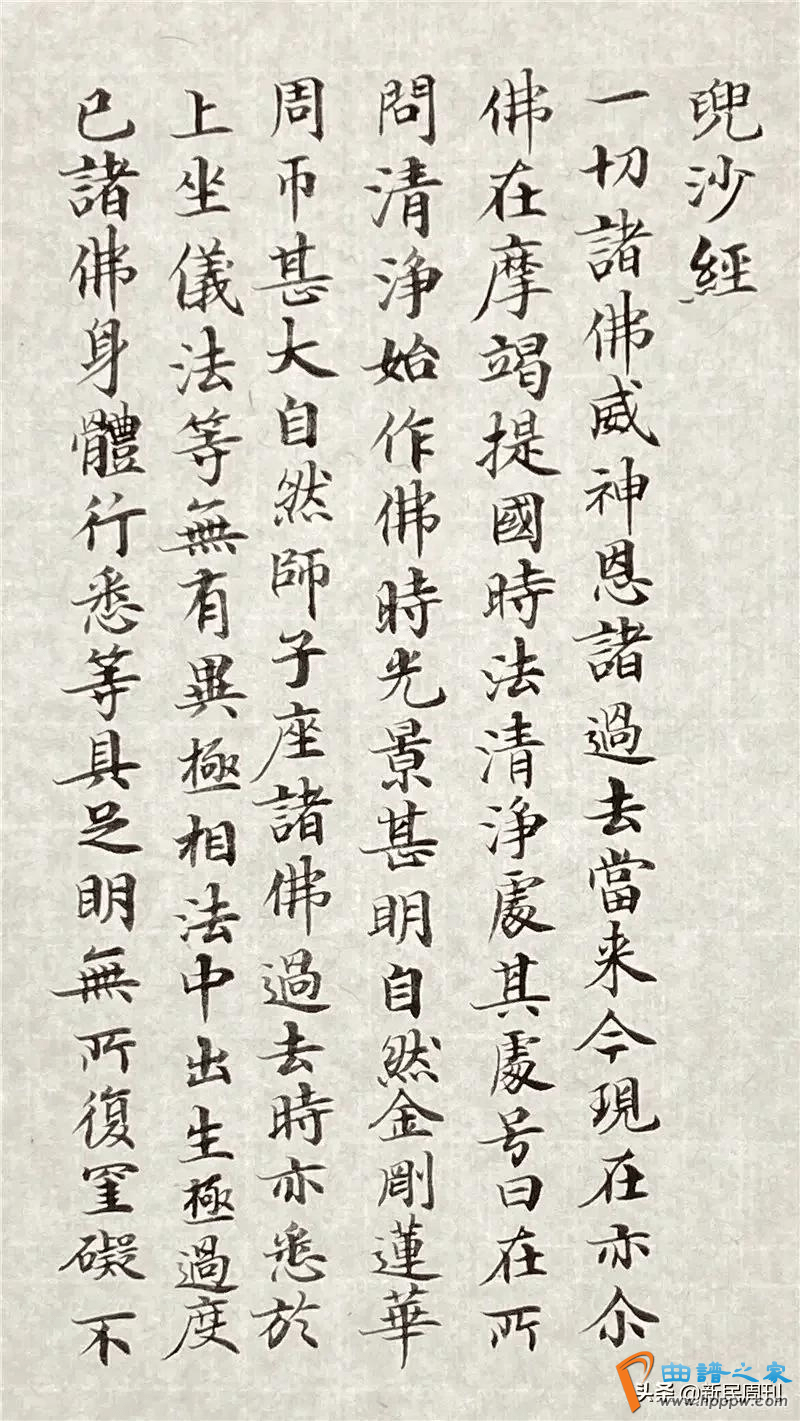 兜沙經
一切諸佛威神恩諸過去當来今現在亦尒
佛在摩竭提國時法清淨處其處号曰在所
問清淨始作佛時光景甚明自然金剛蓮華
周帀甚大自然師子座諸佛過去時亦悉於
上坐儀法等無有異極相法中出生極過度
已諸佛身體行悉等具足明無所復罣礙不
曲譜之家
头条 @新民周刊
www.hppw.com